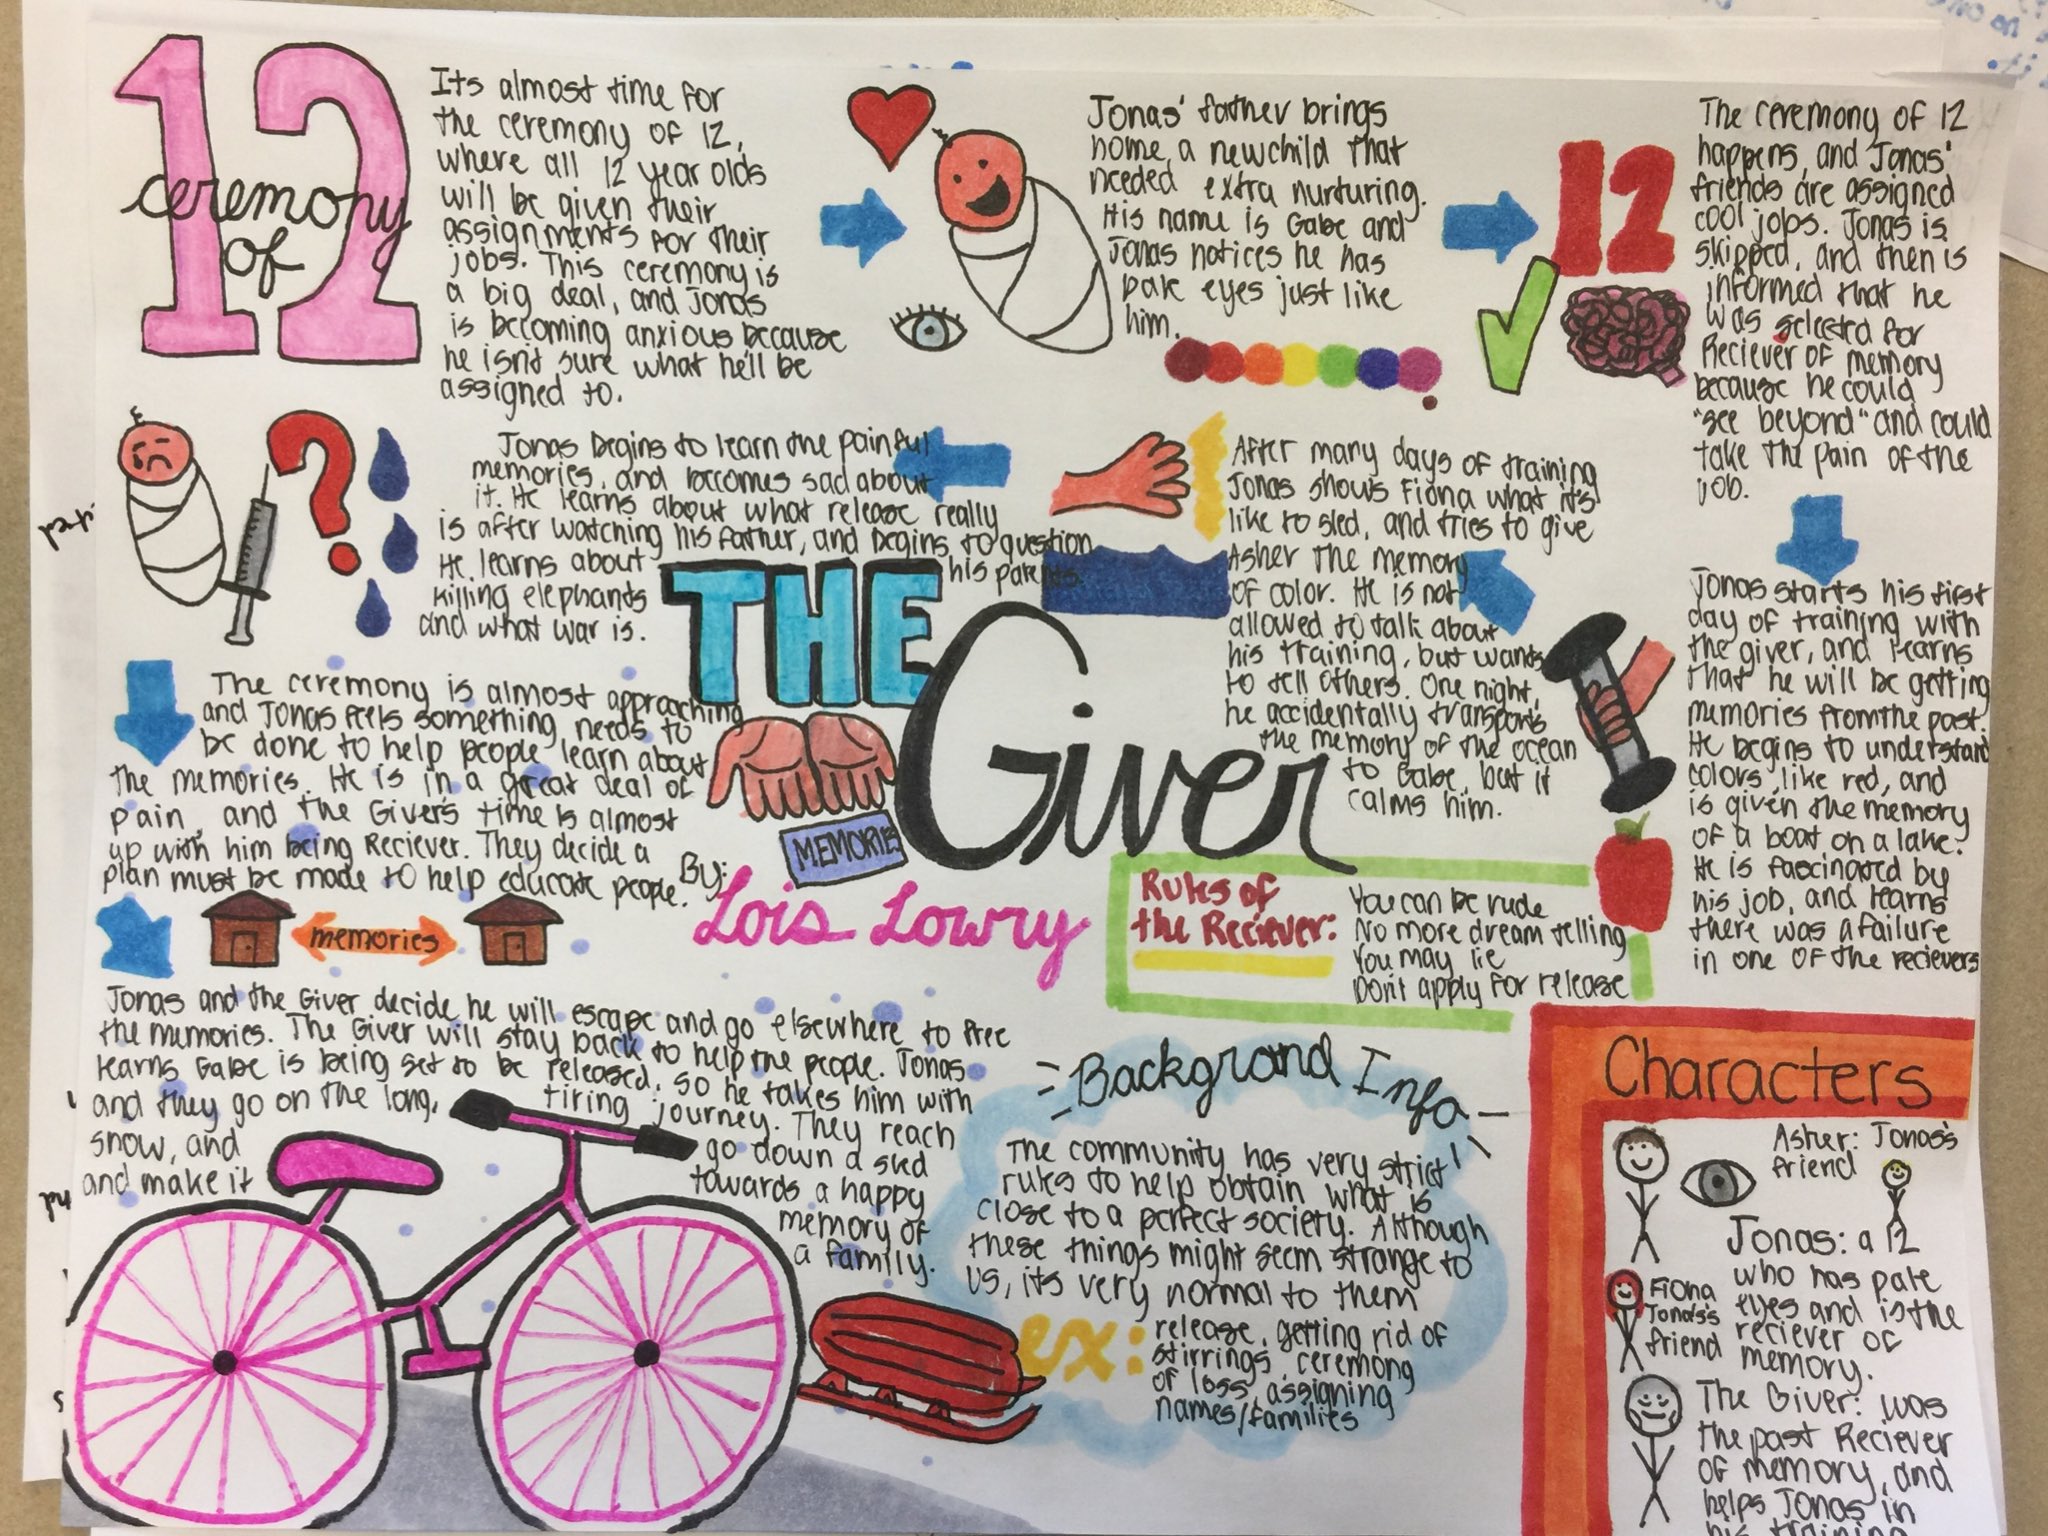 12
ceremony
of
Its almost time for
the ceremony of 12,
where all 12 year olds
will be given their
assignments for their
jobs. This ceremony is
a big deal, and Jonas
is becoming anxious because
he isn't sure what he'll be
assigned to.
Jonas' father brings
home, a newchild that
needed extra nurturing.
His name is Gabe and
Jonas notices he has
pale eyes just like
him.
12
The ceremony of 12
happens, and Jonas'
friends are assigned
cool jobs. Jonas is
skipped, and then is
informed that he
was selected for
Reciever of memory
because he could
"see beyond" and could
take the pain of the
job.
Jonas starts his first
day of training with
the giver, and learns
that he will be getting
memories from the past.
He begins to understand
colors, like red, and
is given the memory
of a boat on a lake.
He is fascinated by
his job, and learns
there was a failure
in one of the recievers
After many days of training
Jonas shows Fiona what it's
like to sled, and tries to give
Asher the memory
of color. He is not
allowed to talk about
his training, but wants
to tell others. One night,
he accidentally transports
the memory of the ocean
to Gabe, but it
calms him.
Jonas begins to learn the painful
memories, and becomes sad about
it. He learns about what release really
is after watching his father, and begins to question
his parents.
He learns about
killing elephants
and what war is.
THE
Giver
MEMORIES
By:
Lois Lowry
The ceremony is almost approaching
and Jonas feels something needs to
be done to help people learn about
the memories. He is in a great deal of
pain, and the Giver's time is almost
up with him being Reciever. They decide a
plan must be made to help educate people.
memories
Jonas and the Giver decide he will escape and go elsewhere to free
the memories. The Giver will stay back to help the people. Jonas
learns Gabe is being set to be released, so he takes him with
and they go on the long, tiring journey. They reach
snow, and go down a sled
and make it towards a happy
memory of
a family.
Rules of
the Reciever:
You can be rude
No more dream telling
You may lie
Don't apply for release
Backgrond Info
The community has very strict
rules to help obtain what is
close to a perfect society. Although
these things might seem strange to
us, its very normal to them
ex:
release, getting rid of
stirrings, ceremony
of loss, assigning
names/families
Characters
Asher: Jonas's
friend
Jonas: a 12
who has pale
eyes and is the
reciever of
memory.
Fiona
Jonas's
friend
The Giver: was
the past Reciever
of memory, and
helps Jonas in
his training